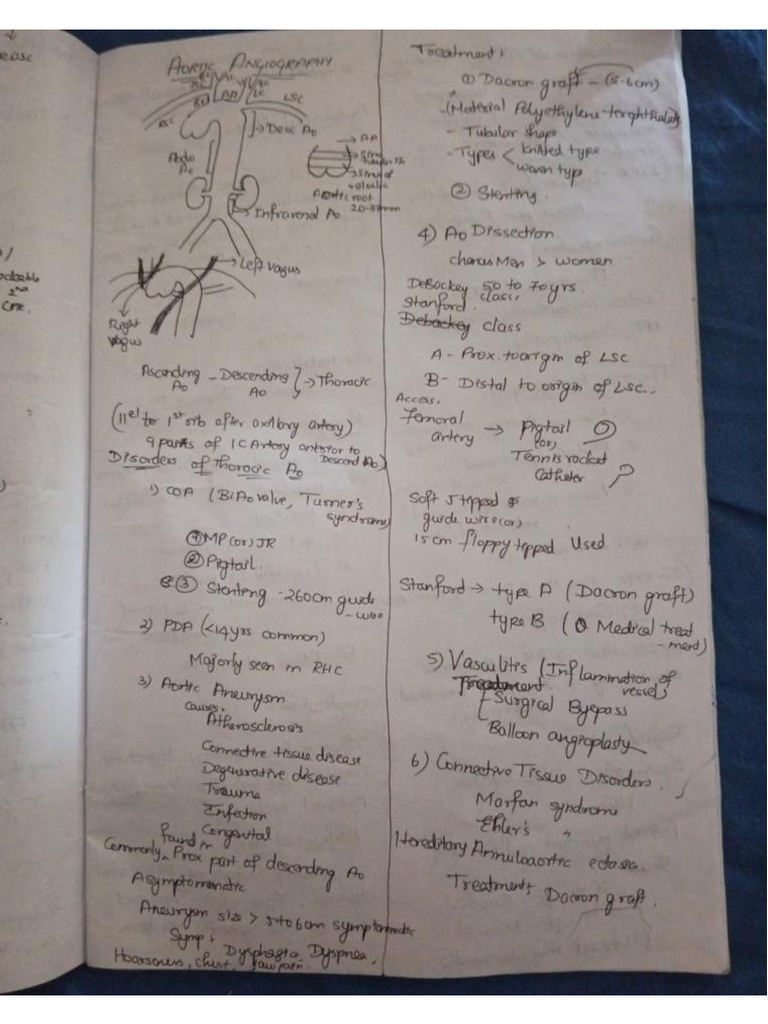 AORTIC ANGIOGRAPHY
LSC
Desc Ao
AA
Ao
Aortic root
Infrarenal Ao
Left vagus
Right
Vagus
Ascending – Descending } → Thoracic
Ao Ao
(11el to 1st rib after axillary artery)
9 pairs of IC Artery anterior to
Descend Ao)
Disorders of Thoracic Ao
1) COA (BiAo valve, Turner's
syndrome)
① MP (or) JR
② Pigtail.
③ Stenting - 260cm guide
- wire
2) PDA (<14yrs common)
Majorly seen in RHC
3) Aortic Aneurysm
causes,
Atherosclerosis
Connective tissue disease
Degenerative disease
Trauma
Infection
Congenital
Commonly found in Prox part of descending Ao
Asymptomatic
Aneurysm size > 5 to 6cm symptomatic
Symp: Dysphagia, Dyspnea,
Hoarsness, chest, Jaw pain.
Treatment:
① Dacron graft – (5-6cm)
- (Material Polyethylene terephthalate)
- Tubular shape
- Types < knitted type
woven typ
② Stenting.
4) Ao Dissection
Men > women
50 to 70yrs
DeBackey class,
Stanford class
Debackey
A - Prox. to origin of LSC
B - Distal to origin of LSC.
Access,
Femoral
artery → Pigtail
(or)
Tennis rocket
Catheter
Soft J tipped
guide wire (or)
15cm floppy tipped Used
Stanford → type A (Dacron graft)
type B (Medical treat
- ment)
5) Vasculitis (Inflammation of
vessels
Treatment
Surgical Byepass
Balloon angioplasty
6) Connective Tissue Disorders.
Marfan syndrome
Ehler's "
Hereditary Annuloaortic ectasia.
Treatment, Dacron graft.